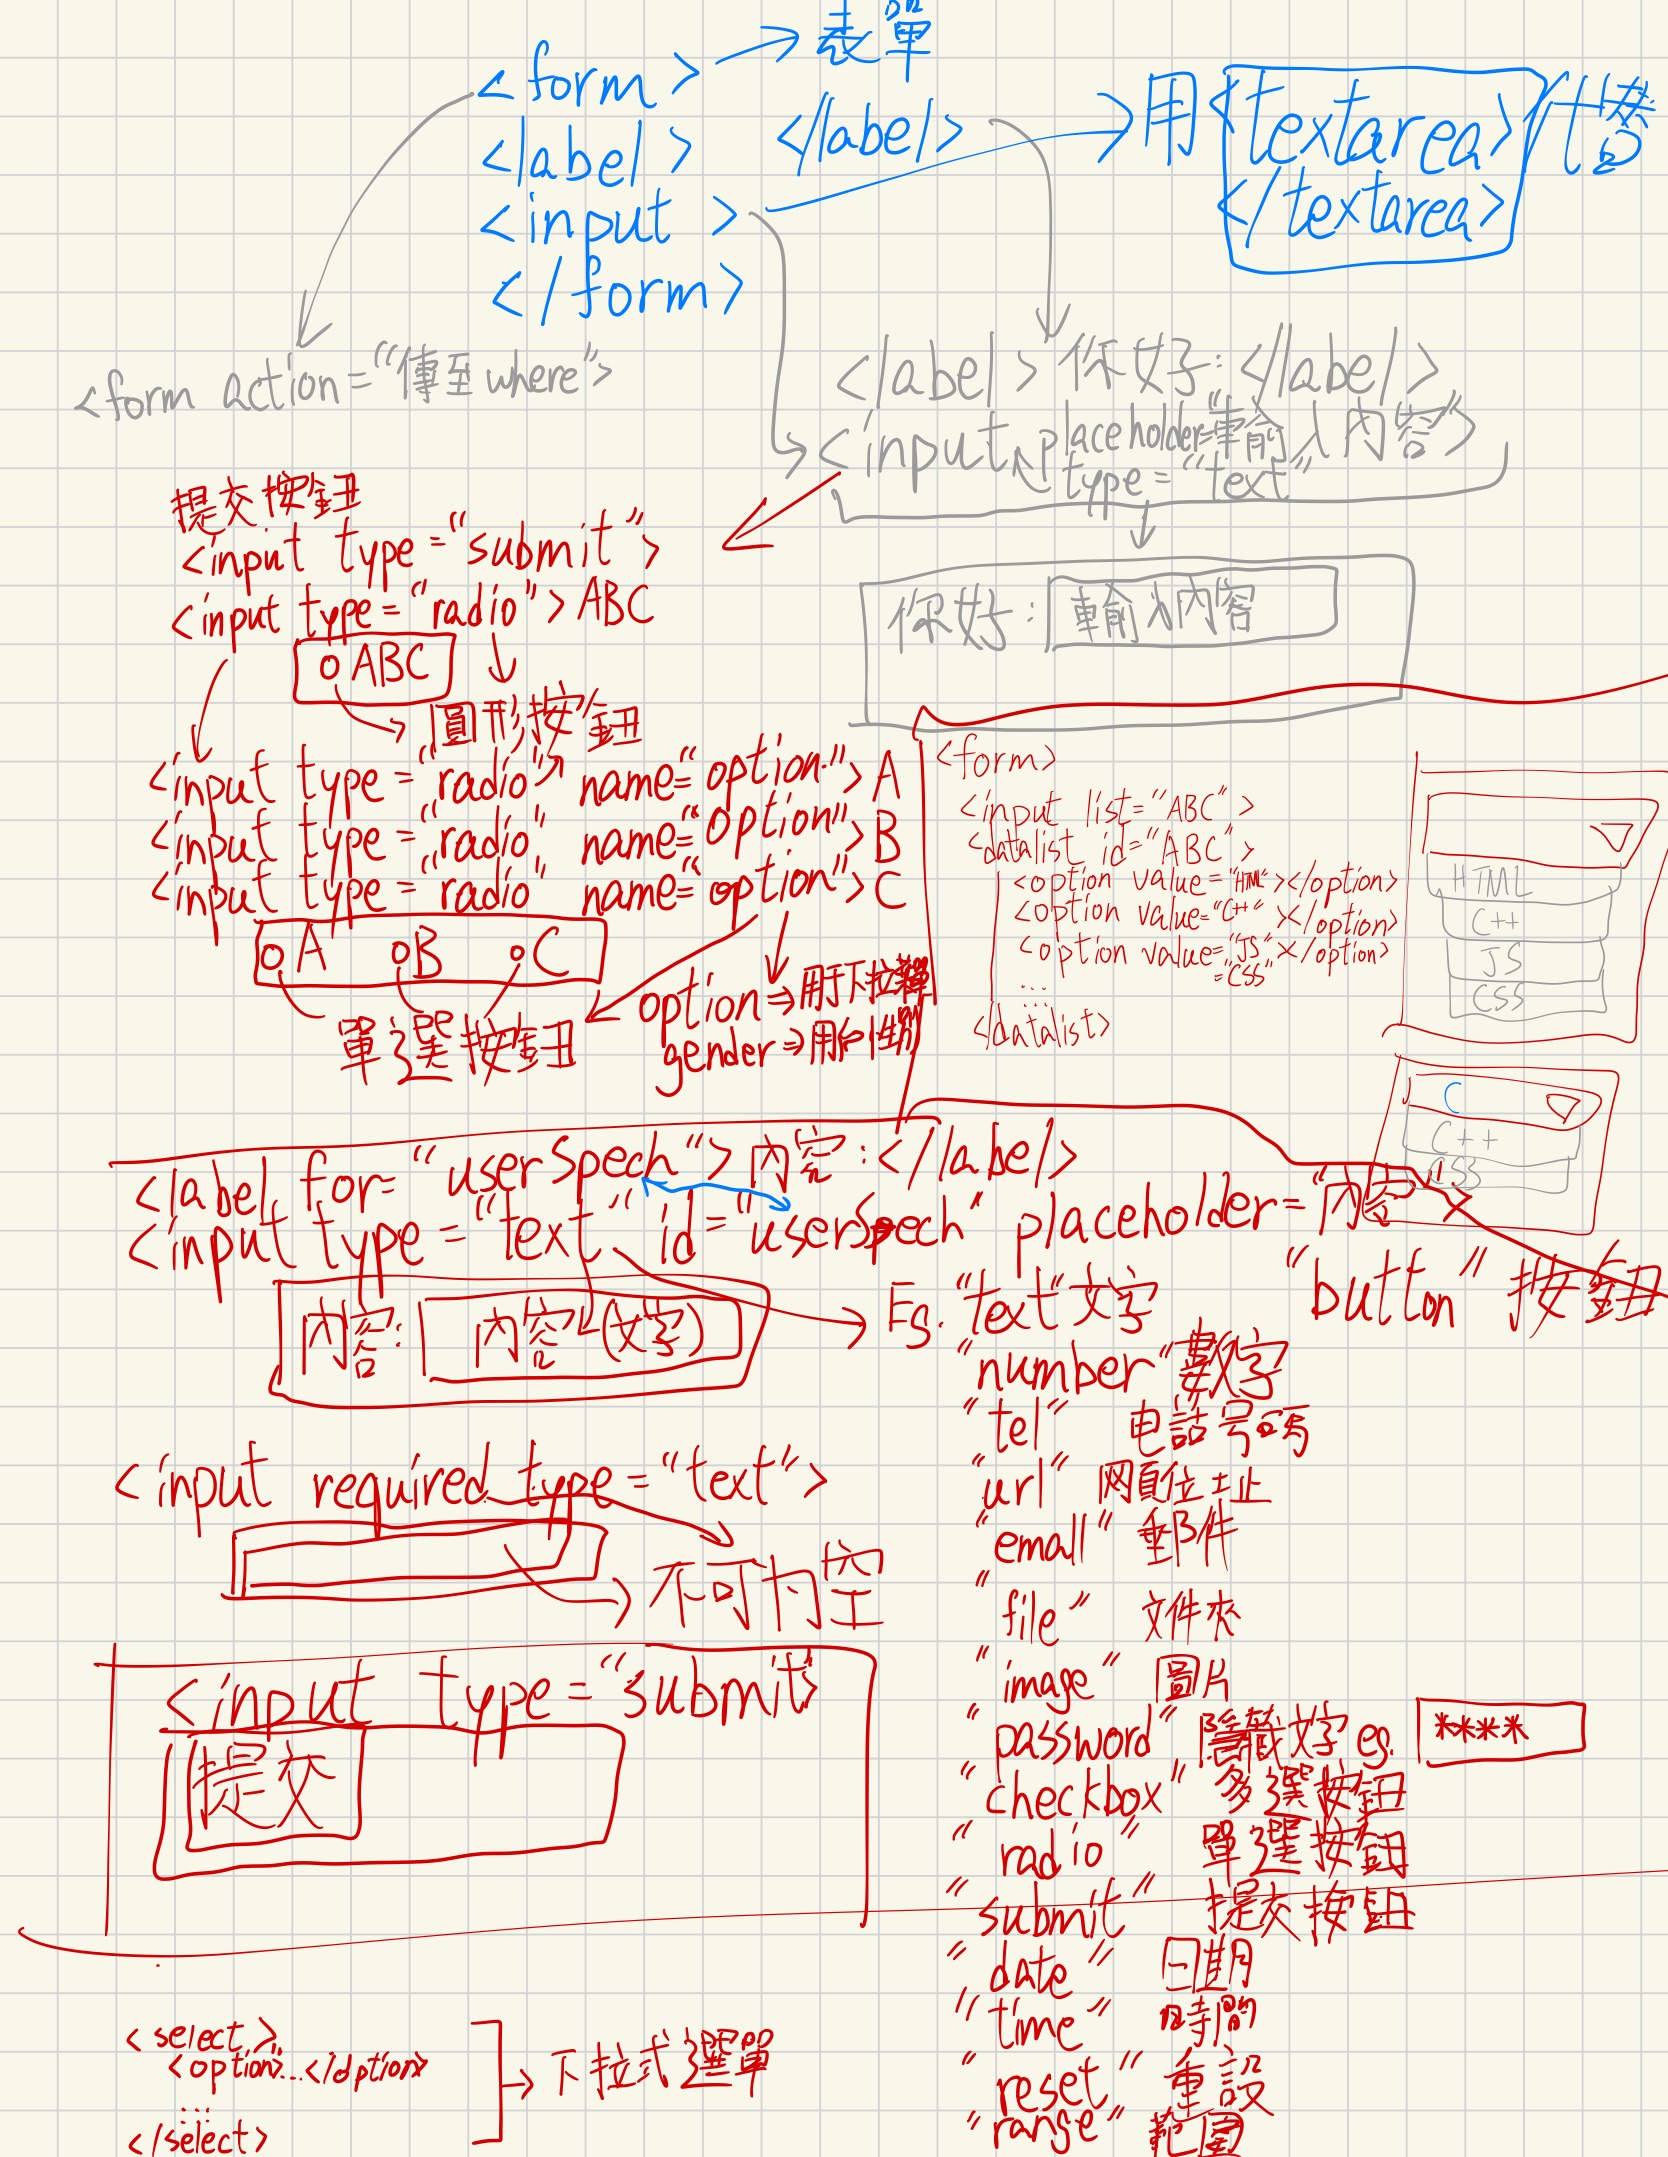 <form> 表單
<label> </label>
<input > 用<textarea>代替
</textarea>
</form>
<form action="傳至where">
</label>你好:</label>
<input placeholder="輸入內容">
type="text"
你好: 輸入內容
提交按鈕
<input type="submit">
<input type="radio">ABC
ABC
圓形按鈕
<input type="radio" name="option">A
<input type="radio" name="option">B
<input type="radio" name="option">C
A B C
單選按鈕
option⇒用于下拉
gender⇒用 性別
<form>
<input list="ABC" >
<datalist id="ABC" >
<option value="HTML"></option>
<option value="C++" ></option>
<option value="JS"></option>
="CSS"
...
...
</datalist>
HTML
C++
JS
CSS
C
C++
CSS
<label for="userSpech">內容:</label>
<input type="text" id="userSpech" placeholder="內容">
內容: 內容(文字)
Eg. "text"文字
"button" 按鈕
"number"數字
"tel" 电話号碼
"url" 网頁位址
"email" 郵件
"file" 文件夾
"image" 圖片
"password" 隱藏文字 eg. ****
"checkbox" 多選按鈕
"radio" 單選按鈕
"submit" 提交按鈕
"date" 日期
"time" 時間
"reset" 重設
"range" 範圍
<input required type="text">
不可为空
<input type="submit"
提交
<select >
<option>...</option>
...
</select>
下拉式選單